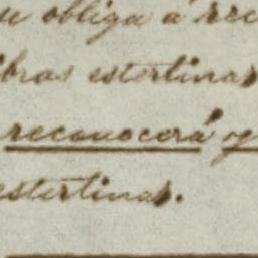 se obliga á rec
ibras esterlinas
reconocerá y
esterlinas.